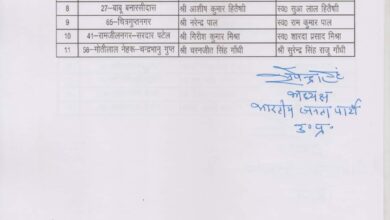 8 27–बाबू बनारसीदास श्री आशीष कुमार हितैषी स्व० सुआ लाल हितैषी
9 65–चित्रगुप्तनगर श्री नरेन्द्र पाल स्व० राम कुमार पाल
10 41–रामजीलनगर–सरदार पटेल श्री गिरीश कुमार मिश्रा स्व० शारदा प्रसाद मिश्रा
11 56–मोतीलाल नेहरू–चन्द्रभानु गुप्त श्री चरनजीत सिंह गाँधी श्री सुरेन्द्र सिंह राजू गाँधी
अध्यक्ष
भारतीय जनता पार्टी
उ० प्र०